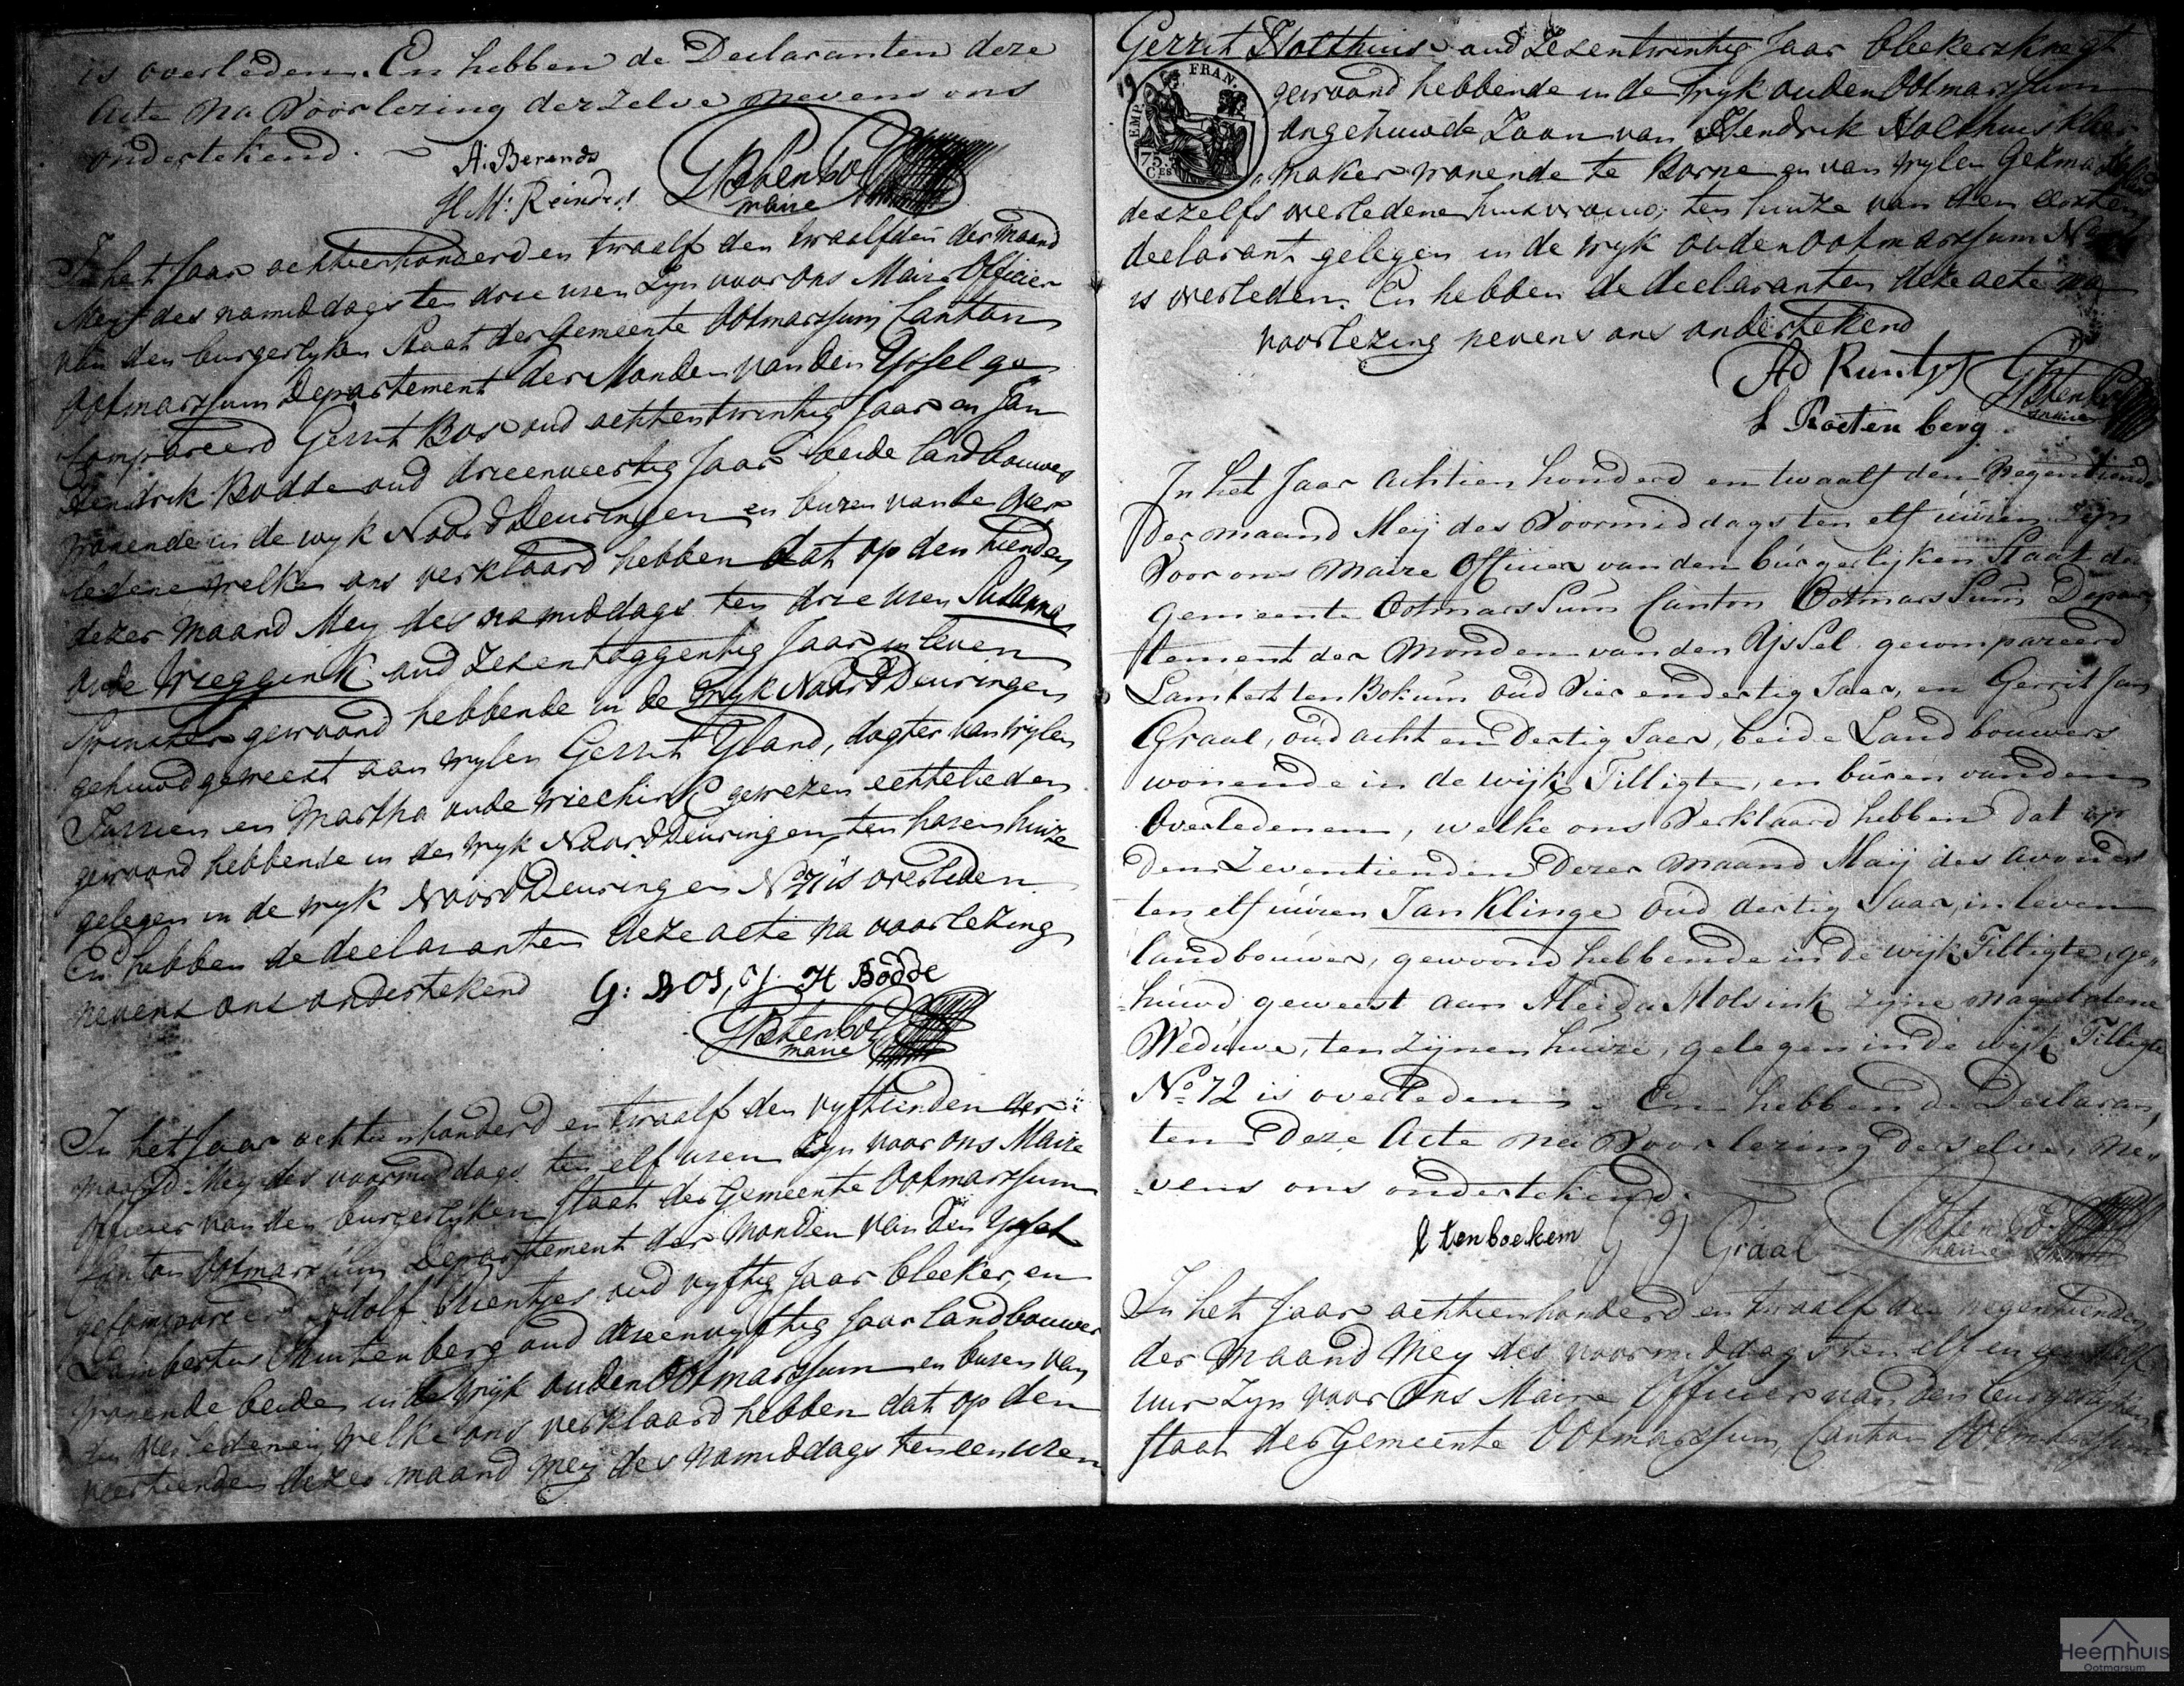 is overleden. En hebben de Declaranten deze
Acte Na Voorlezing derzelve nevens ons
ondertekend.
A. Berends
H M: Reinders
maire
In het Jaar achttienhonderd en twaalf den twaalfden der maand
Mey des namiddags ten drie uren Zyn voor ons Maire Officier
van den burgerlyken Staat der Gemeente Ootmarssum Canton
Ootmarssum Departement der Monden van den Yssel ge
Compareerd Gerrit Bos oud achtentwintig Jaar en Jan
Hendrik Bodde oud drieenveertig Jaar beide landbouwers
wonende in de wyk Noord Deuringen en buren van de over
ledene welke ons verklaard hebben dat op den tienden
dezer maand Mey des namiddags ten drie uren Susanna
oude Wreggink oud Zesentaggentig Jaar in leven
Spinster gewoond hebbende in de wyk Noord Deuringen
gehuwd geweest aan wylen Gerrit Yland, dogter van wylen
en Martha oude Wrechink gewezen echtelieden
gewoond hebbende in de wyk Noord Deuringen, ten haren huize
gelegen in de wyk Noord Deuringen No is overleden
En hebben de declaranten deze acte na voorlezing
nevens ons ondertekend
G: BOS, J. H Bodde
maire
In het Jaar achttienhonderd en twaalf den vyftienden der
maand Mey des voormiddags ten elf uren Zyn voor ons Maire
Officier van den burgerlyken Staat der Gemeente Ootmarssum
Canton Ootmarssum Departement der Monden van den Yssel
geCompareerd Adolf Kuentjes oud vyftig Jaar bleeker, en
Lambertus oud drieenvyftig Jaar landbouwer
wonende beide in de wyk ouden Ootmarssum en buren van
den overledenen welke ons verklaard hebben dat op den
veertienden dezer maand Mey des namiddags ten een uren
Gerrit Holthuis oud Zesentwintig Jaar bleekersknegt
19
EMP. FRAN.
75. CES
gewoond hebbende in de wyk ouden Ootmarssum
ongehuwde Zoon van Hendrik Holthuis
maker wonende te Borne en van wylen
deszelfs overledene huisvrouw; ten huize van den eersten
declarant gelegen in de wyk ouden Ootmarssum No
is overleden. En hebben de declaranten deze acte na
voorlezing nevens ons ondertekend
Ad Kuntjes
L Roetenberg
In het Jaar Achtien honderd en twaalf den Negentiende
Der maand Meij des Voormiddags ten elf uúren zijn
Voor ons Maire Officier van den burgerlijken Staat der
Gemeente Ootmarssum Canton Ootmarssum Depar
tement der Monden van den Yssel gecompareerd
Lambert ten Bokum oúd Vier en dertig Jaar, en Gerrit Jan
Graal, oúd acht en Dertig Jaer, beide Landbouwers
wonende in de wijk Tilligte, en búren van den
Overledenen, welke ons Verklaard hebben dat op
Den Zeventienden Dezer maand Maij des avonds
ten elf uúren Jan Klinge oúd dertig Jaar, in leven
landbouwer, gewoond hebbende in de wijk Tilligte, ge„
huwd geweest aan Aleida Molsink zijne nagelatene
Weduwe, ten Zijnen huize, gelegen in de wijk Tilligte
No. 72 is overleden. En hebben de Declaran„
ten Deze Acte na Voorlezing deselve, ne„
vens ons ondertekend.
l tenboekem G J Graal
maire
In het Jaar achttienhonderd en twaalf den negentienden
der maand Mey des voormiddags ten elf en een half
uur Zyn voor Ons Maire Officier van den burgerlyken
Staat der Gemeente Ootmarssum, Canton Ootmarssum
Heemhuis
Ootmarsum